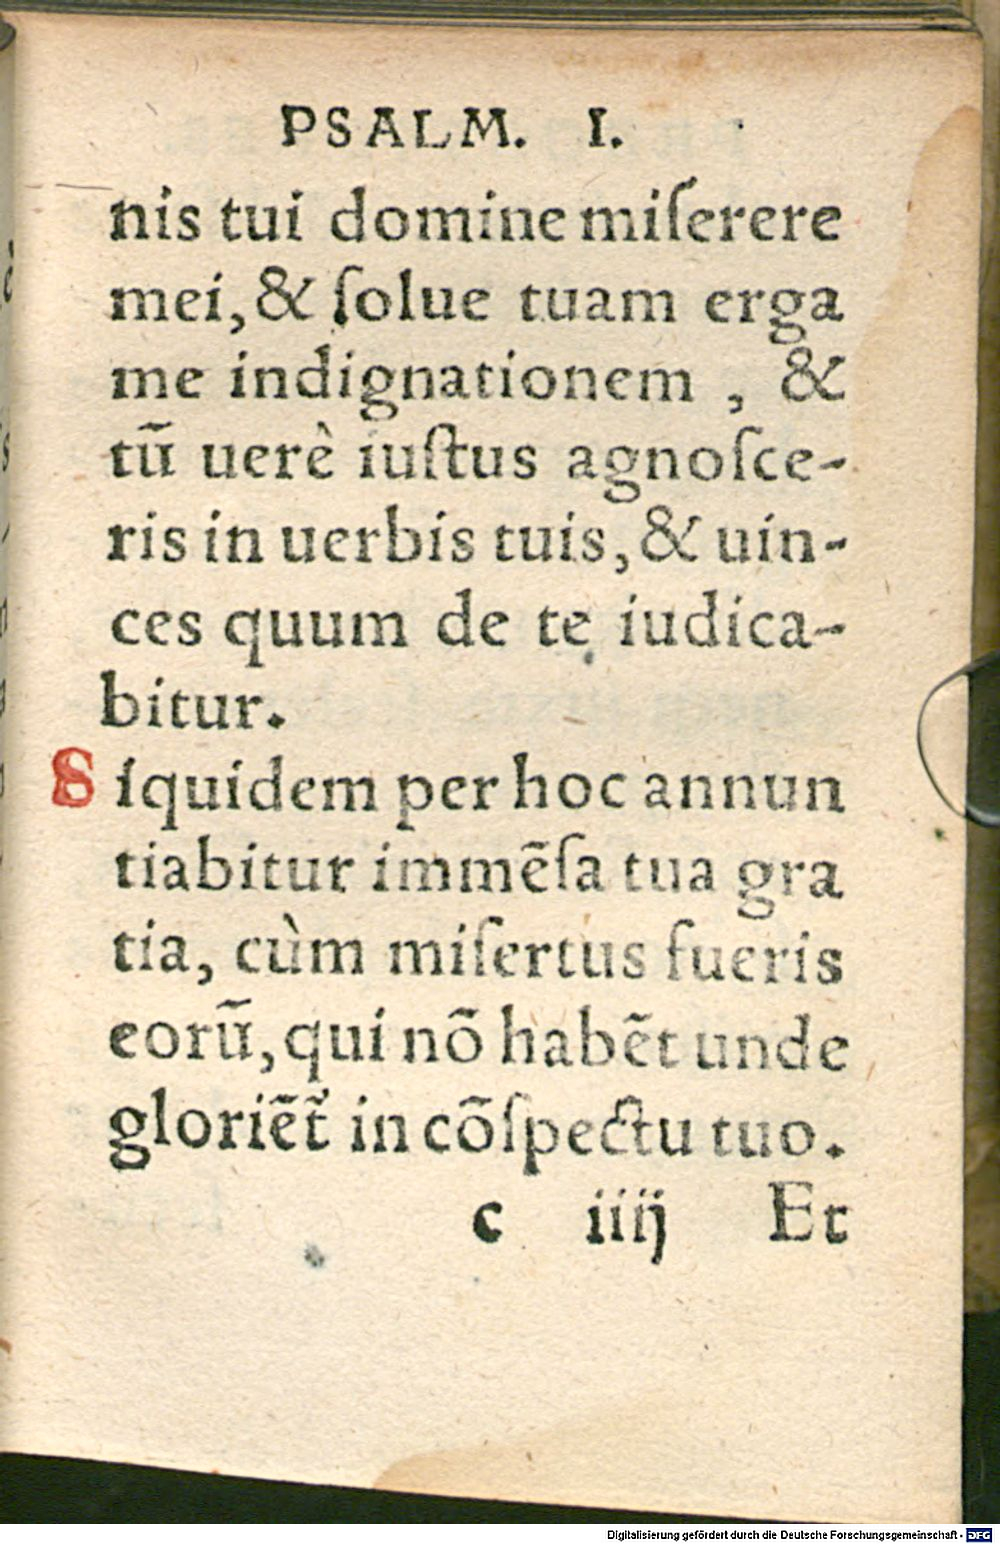 PSALM. I.
nis tui domine miſerere
mei, & ſolue tuam erga
me indignationem , &
tũ uerè iuſtus agnoſce-
ris in uerbis tuis, & uin-
ces quum de te iudica-
bitur.
Siquidem per hoc annun
tiabitur immẽſa tua gra
tia, cùm miſertus fueris
eorũ, qui nõ habẽt unde
gloriẽt᷑ in cõſpectu tuo.
c iiij Et
Digitalisierung gefördert durch die Deutsche Forschungsgemeinschaft - DFG